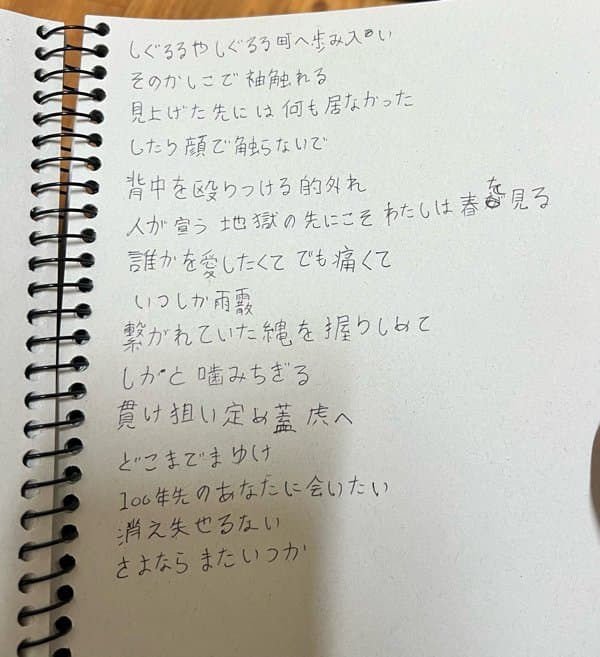 しぐるるやしぐるる町へ歩み入い
そのかしこで袖触れる
見上げた先には何も居なかった
したら顔で触らないで
背中を殴りつける的外れ
人が宣う地獄の先にこそ わたしは春を見る
誰かを愛したくて でも痛くて
いつしか雨霰
繋がれていた縄を握りしめて
しかと噛みちぎる
貫け狙い定め蓋虎へ
どこまでまゆけ
100年先のあなたに会いたい
消え失せるない
さよならまたいつか